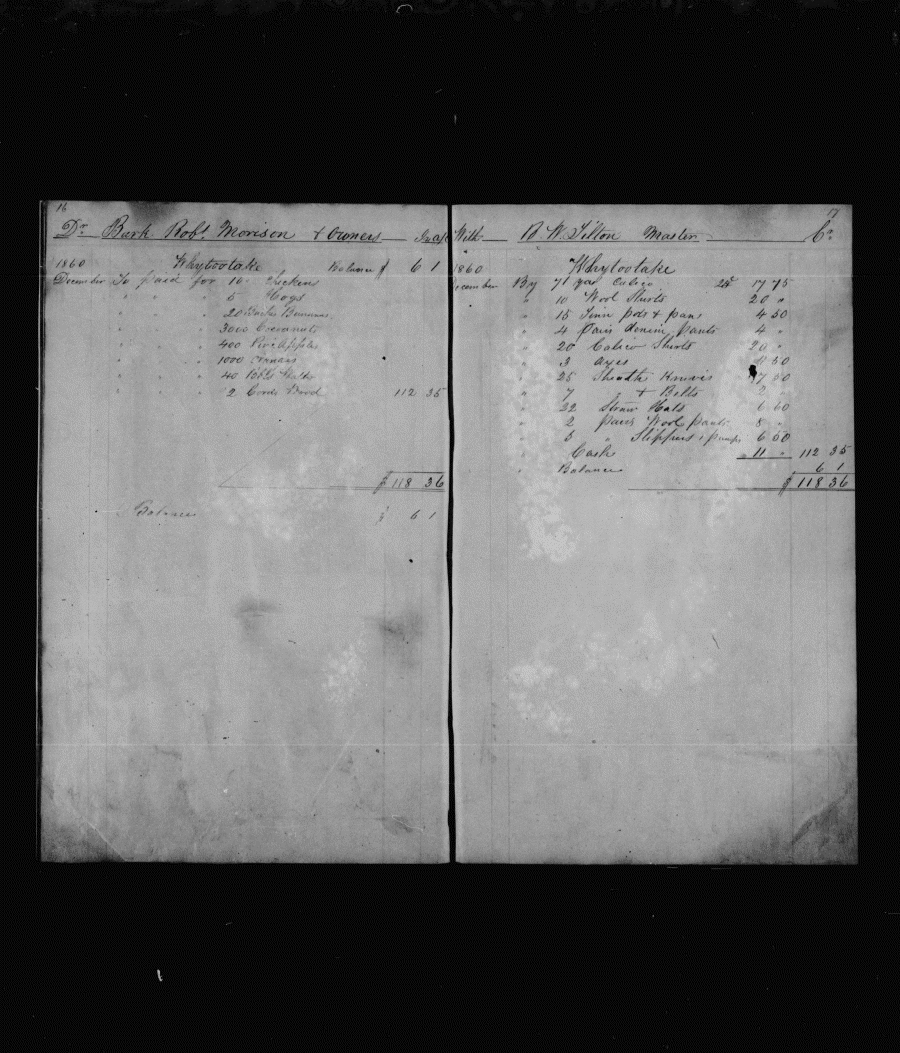 16
Dr Bark Robt. Morison & Owners In a/c
1860 Whytootake Balance $ 6 1
December To paid for 10 Chickens
" " " 5 Hogs
" " " 20 Bunches Bananas
" " " 3000 Cocoanuts
" " " 400 Pine Apples
" " " 1000
" " " 40 Bbls
" " " 2 Cords Wood 112 35
$ 118 36
Balance $ 6 1
17
With B W Tilton Master Cr.
1860 Whytootake
December By 71 yds Calico 25 17 75
" 10 Wool Shirts 20 "
" 15 Tinn pots & pans 4 50
" 4 Pair denim pants 4 "
" 20 Calico Shirts 20 "
" 3 Axes 50
" 25 Sheath Knives
" 7 " & Belts 2 "
" 22 Straw Hats 6 60
" 2 pairs Wool pants 8 "
" 5 " Slippers & pumps 6 50
" Cash 11 " 112 35
" Balance 6 1
$ 118 36